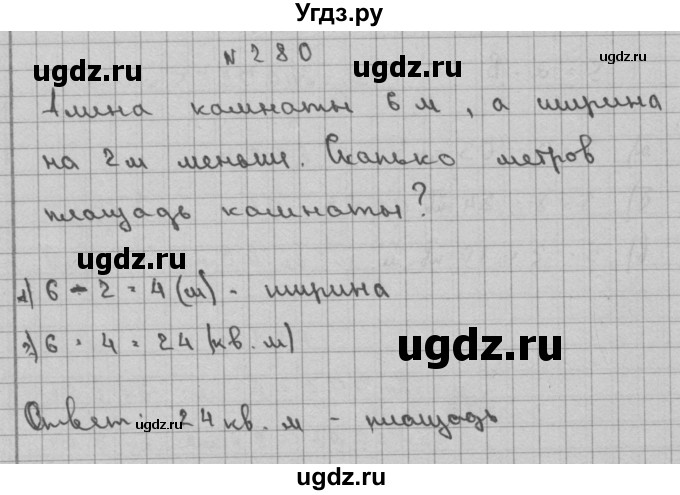 Угдз.ру
№ 280
ugdz.ru ugdz.ru ugdz.ru
Длина комнаты 6 м, а ширина
на 2м меньше. Сколько метров
ugdz.ru
площадь комнаты?
ugdz.ru
1) 6 - 2 = 4 (м) - ширина
2) 6 · 4 = 24 (кв. м)
ugdz.ru
Ответ: 24 кв. м - площадь
ugdz.ru
ugdz.ru